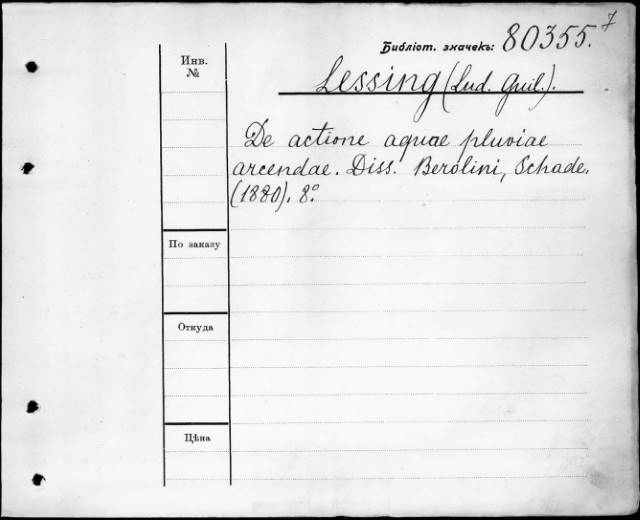 7
Библіот. значекъ: 80355.
Инв.
№
Lessing (Lud. Guil.).
De actione aquae pluviae
arcendae. Diss. Berolini, Schade.
(1880). 8°.
По заказу
Откуда
Цѣна